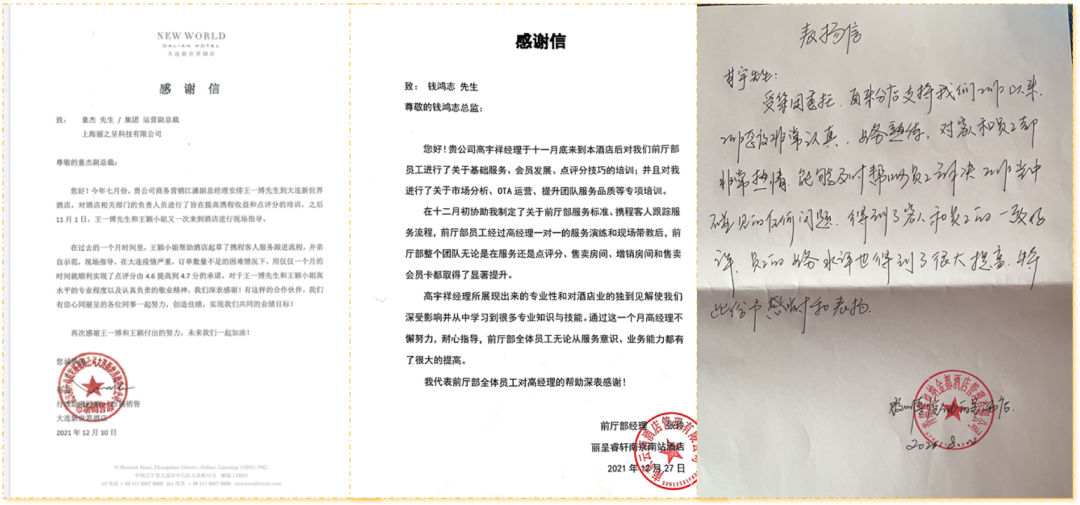 NEW WORLD
DALIAN HOTEL
大连新世界酒店
感 谢 信
致： 童杰 先生 / 集团 运营副总裁
上海丽之呈科技有限公司
尊敬的童杰副总裁：
您好！今年七月份，贵公司商务营销江潇副总经理安排王一博先生到大连新世界
酒店，对酒店相关部门的负责人员进行了旨在提高携程收益和点评分的培训，之后
11 月 1 日，王一博先生和王颖小姐又一次来到酒店进行现场指导。
在过去的一个月时间里，王颖小姐帮助酒店起草了携程客人服务跟进流程，并亲
自示范，现场指导，在大连疫情严重，订单数量不足的困难情况下，用仅仅一个月的
时间就顺利实现了点评分由 4.6 提高到 4.7 分的承诺，对于王一博先生和王颖小姐高
水平的专业程度以及认真负责的敬业精神，我们深表感谢！有这样的合作伙伴，我们
有信心同丽呈的各位同事一起努力，创造佳绩，实现我们共同的业绩目标！
再次感谢王一博和王颖付出的努力，未来我们一起加油！
您诚
市场销售部
大连新世界酒店
2021 年 12 月 10 日
感谢信
致： 钱鸿志 先生
尊敬的钱鸿志总监：
您好！贵公司高宇祥经理于十一月底来到本酒店后对我们前厅部
员工进行了关于基础服务、会员发展、点评分技巧的培训；并且对我
进行了关于市场分析、OTA 运营、提升团队服务品质等专项培训。
在十二月初协助我制定了关于前厅部服务标准、携程客人跟踪服
务流程，前厅部员工经过高经理一对一的服务演练和现场带教后，前
厅部整个团队无论是在服务还是点评分、售卖房间、增销房间和售卖
会员卡都取得了显著提升。
高宇祥经理所展现出来的专业性和对酒店业的独到见解使我们
深受影响并从中学习到很多专业知识与技能。通过这一个月高经理不
懈努力，耐心指导，前厅部全体员工无论从服务意识、业务能力都有
了很大的提高。
我代表前厅部全体员工对高经理的帮助深表感谢！
前厅部经理
丽呈睿轩南京南站酒店
2021 年 12 月 27 日
表扬信
先生：
受集团委托，自来分店支持我们工作以来，
工作态度非常认真，业务熟练，对客人和员工都
非常热情，能够及时帮助员工解决工作当中
碰见的任何问题，得到了客人和员工的一致好
评，员工的业务水评也得到了很大提高，特
此份予感谢和表扬.